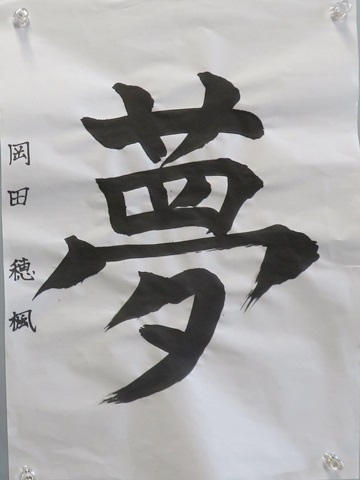 夢
岡田穂楓